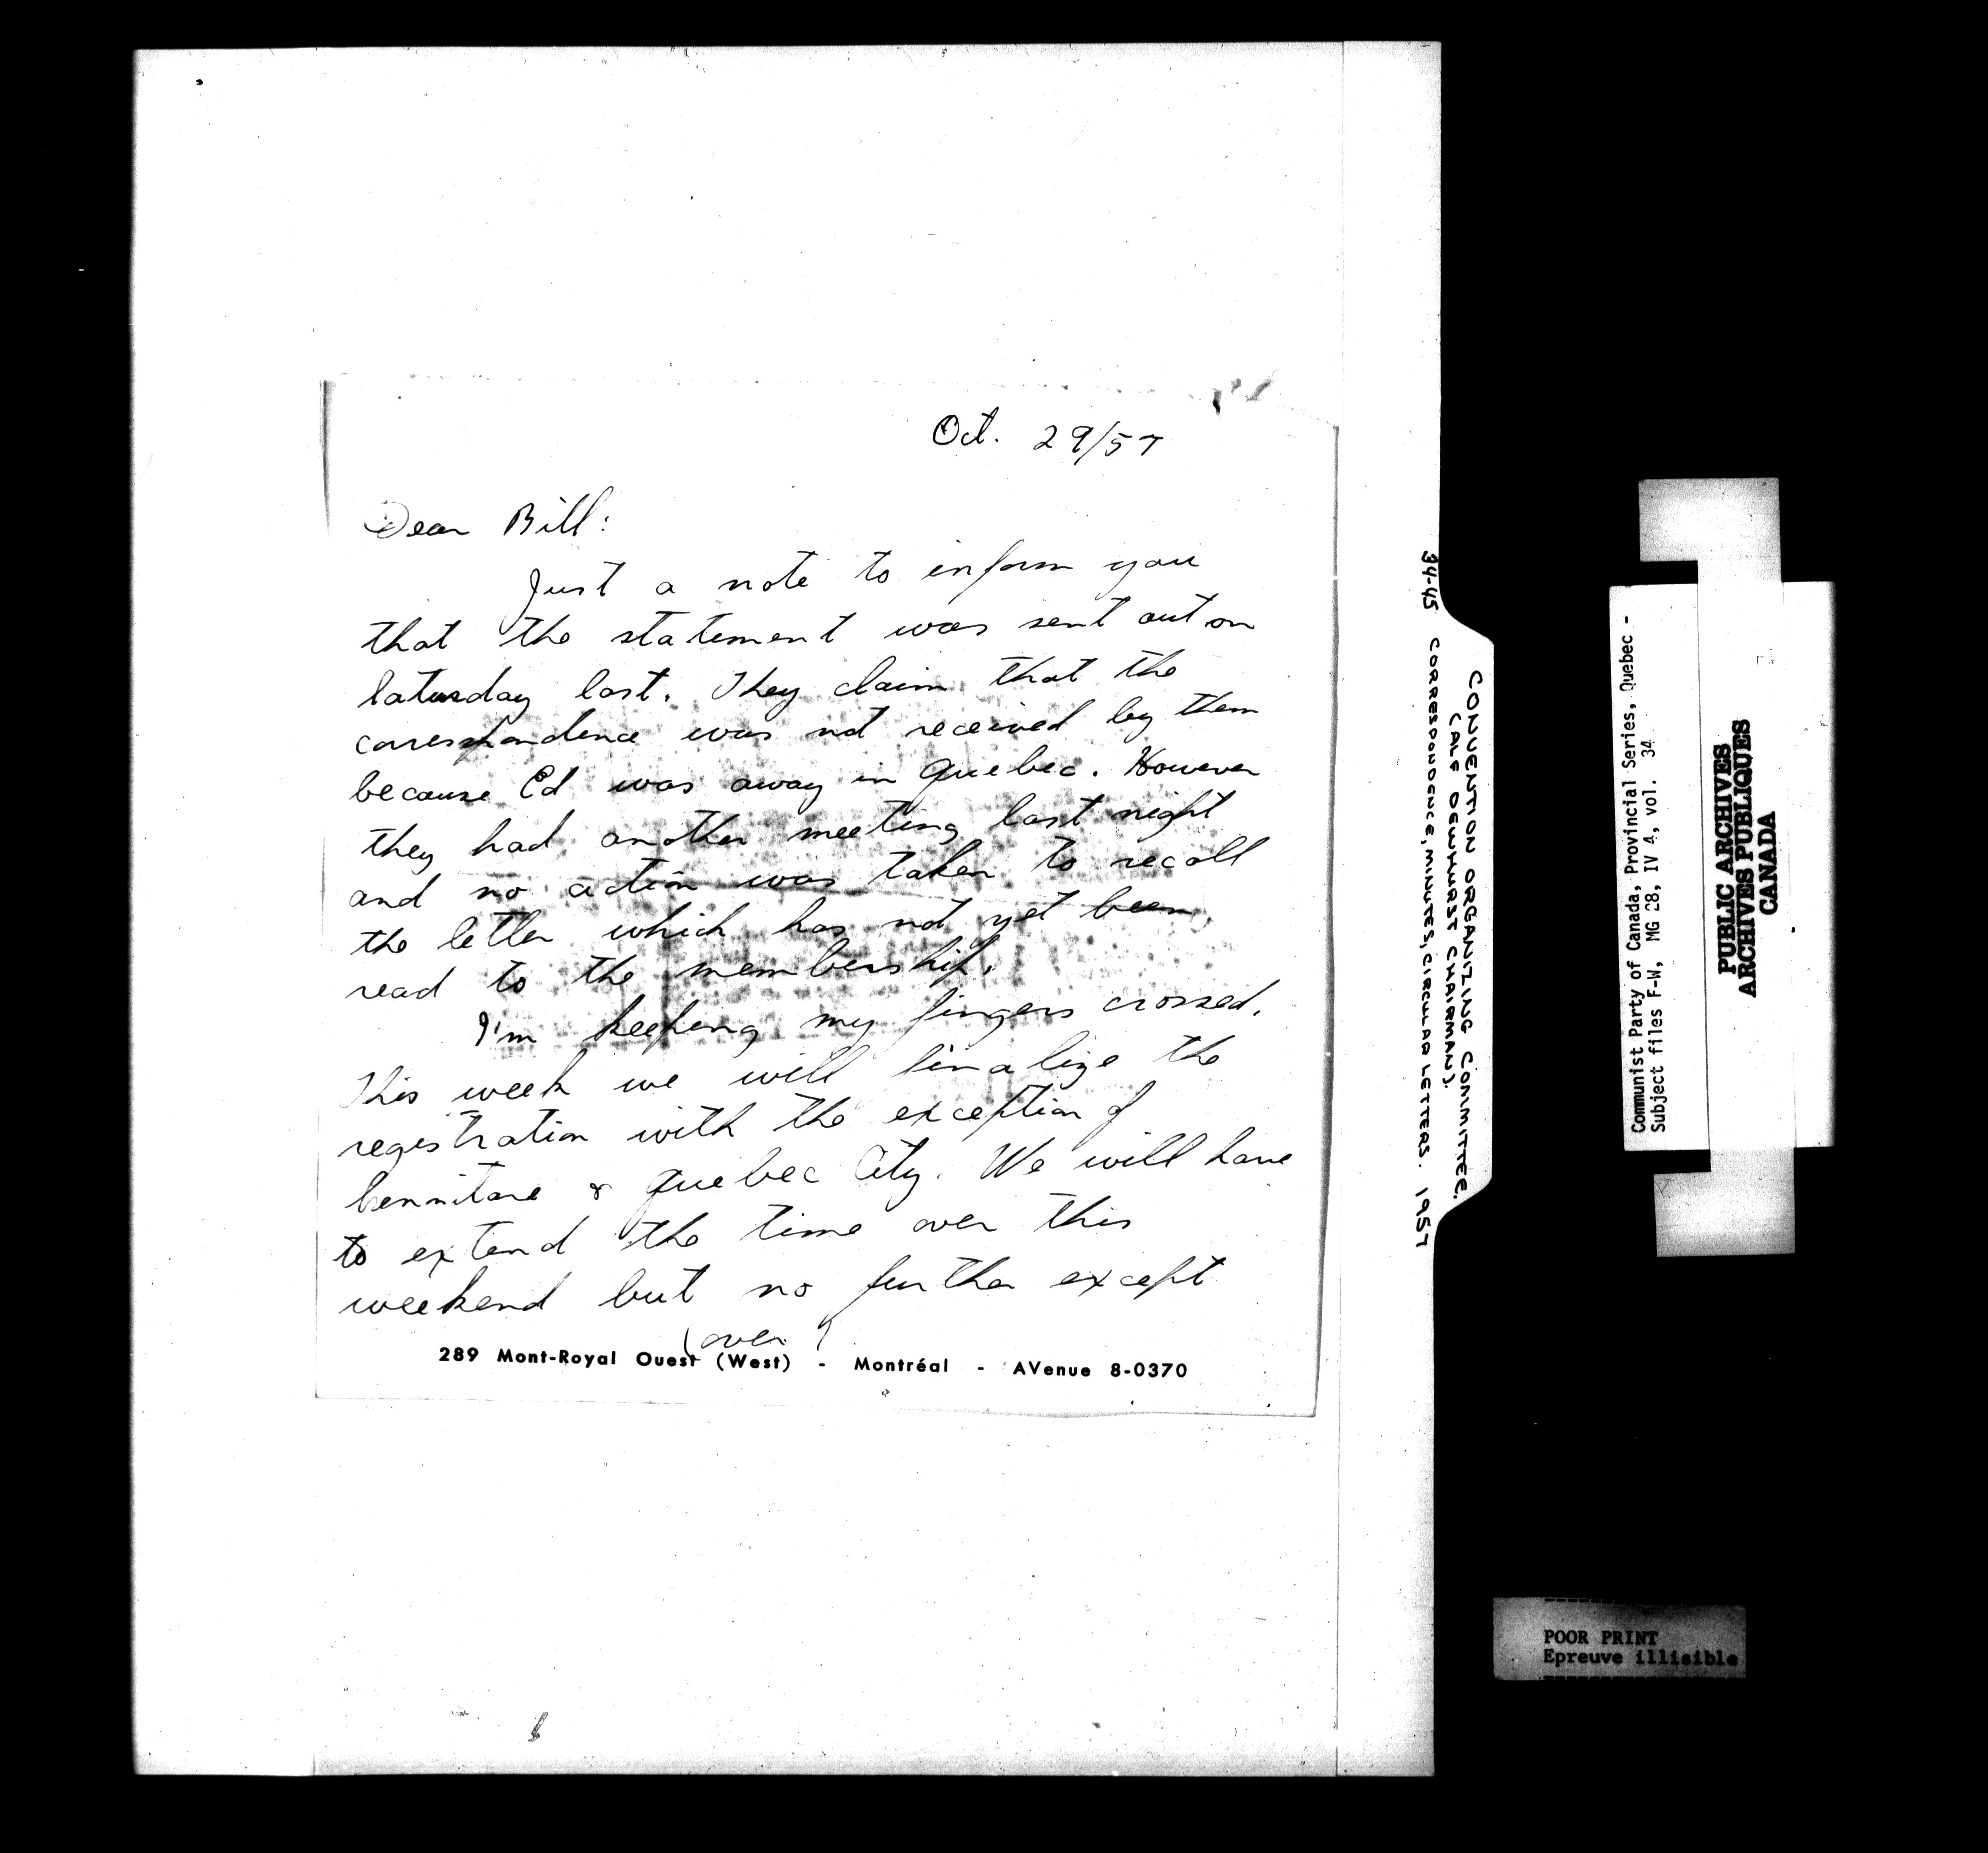 Oct. 29/57
Dear Bill:
Just a note to inform you
that the statement was sent out on
Saturday last. They claim that the
correspondence was not received by them
because Ed was away in Quebec. However
they had another meeting last night
and no action was taken to recall
the letter which has not yet been
read to the membership.
I'm keeping my fingers crossed.
This week we will finalize the
registration with the exception of
& Quebec City. We will have
to extend the time over this
weekend but no further except
(over)
289 Mont-Royal Ouest (West) - Montréal - AVenue 8-0370
34-45 CORRESPONDENCE, MINUTES, CIRCULAR LETTERS. 1957
CONVENTION ORGANIZING COMMITTEE.
(ALF DEWHURST CHAIRMAN).
Communist Party of Canada, Provincial Series, Quebec -
Subject files F-W, MG 28, IV 4, vol. 34
PUBLIC ARCHIVES
ARCHIVES PUBLIQUES
CANADA
POOR PRINT
Epreuve illisible